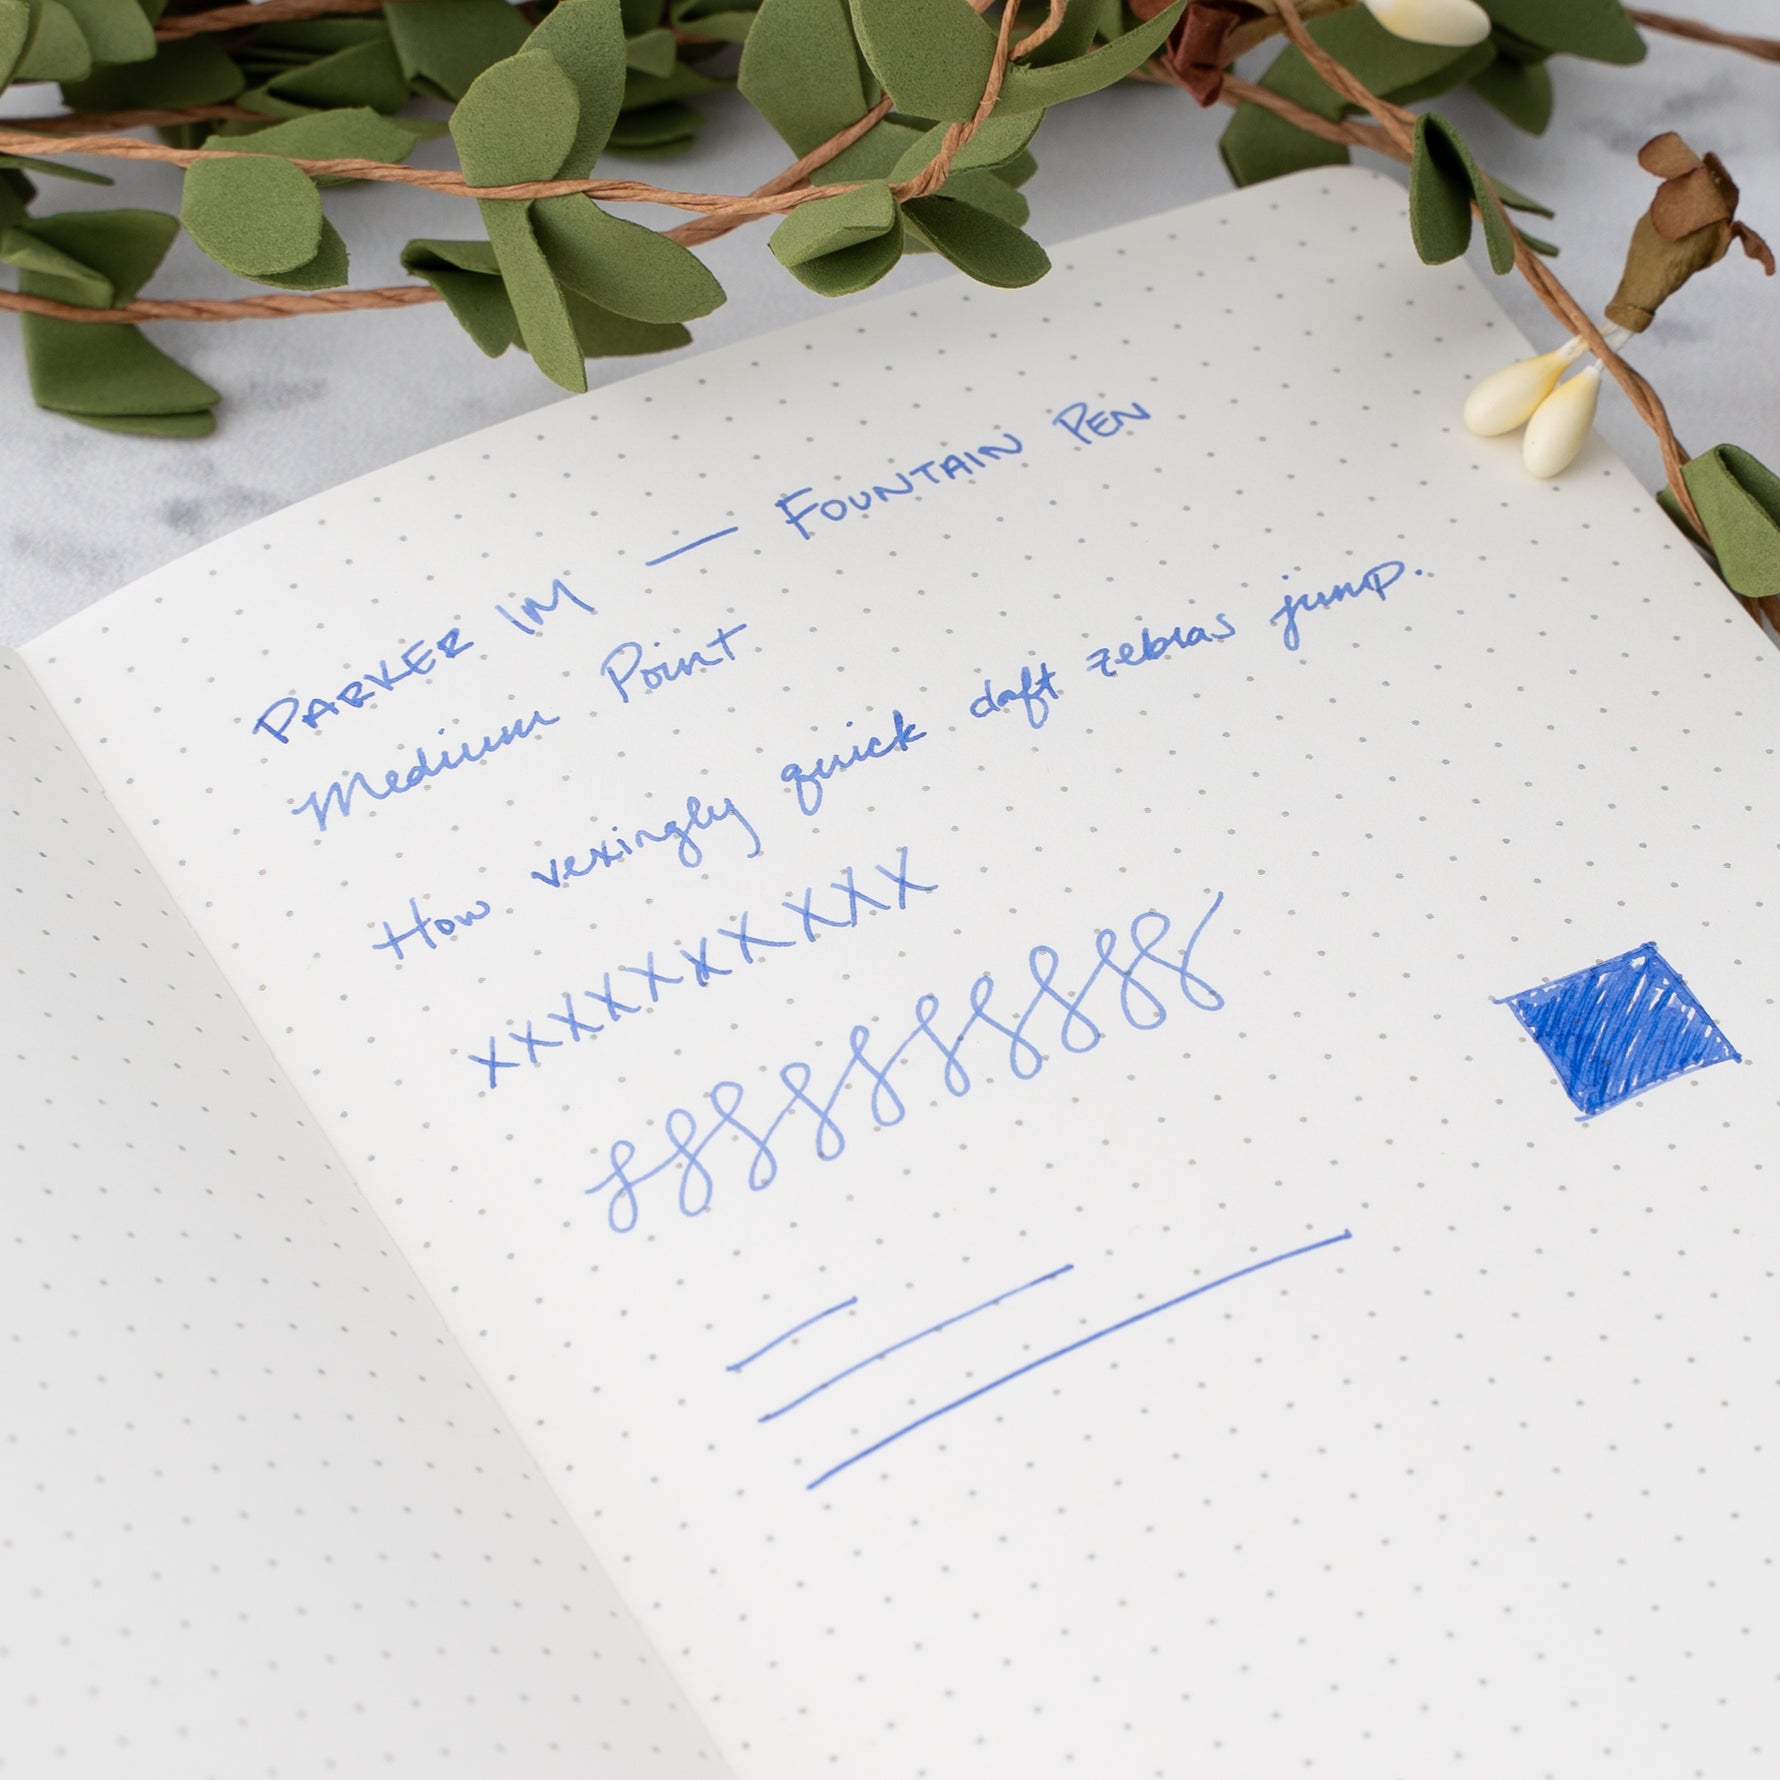 PARKER IM — FOUNTAIN PEN
Medium Point
How vexingly quick daft zebras jump.
xxxxxxxxxxx